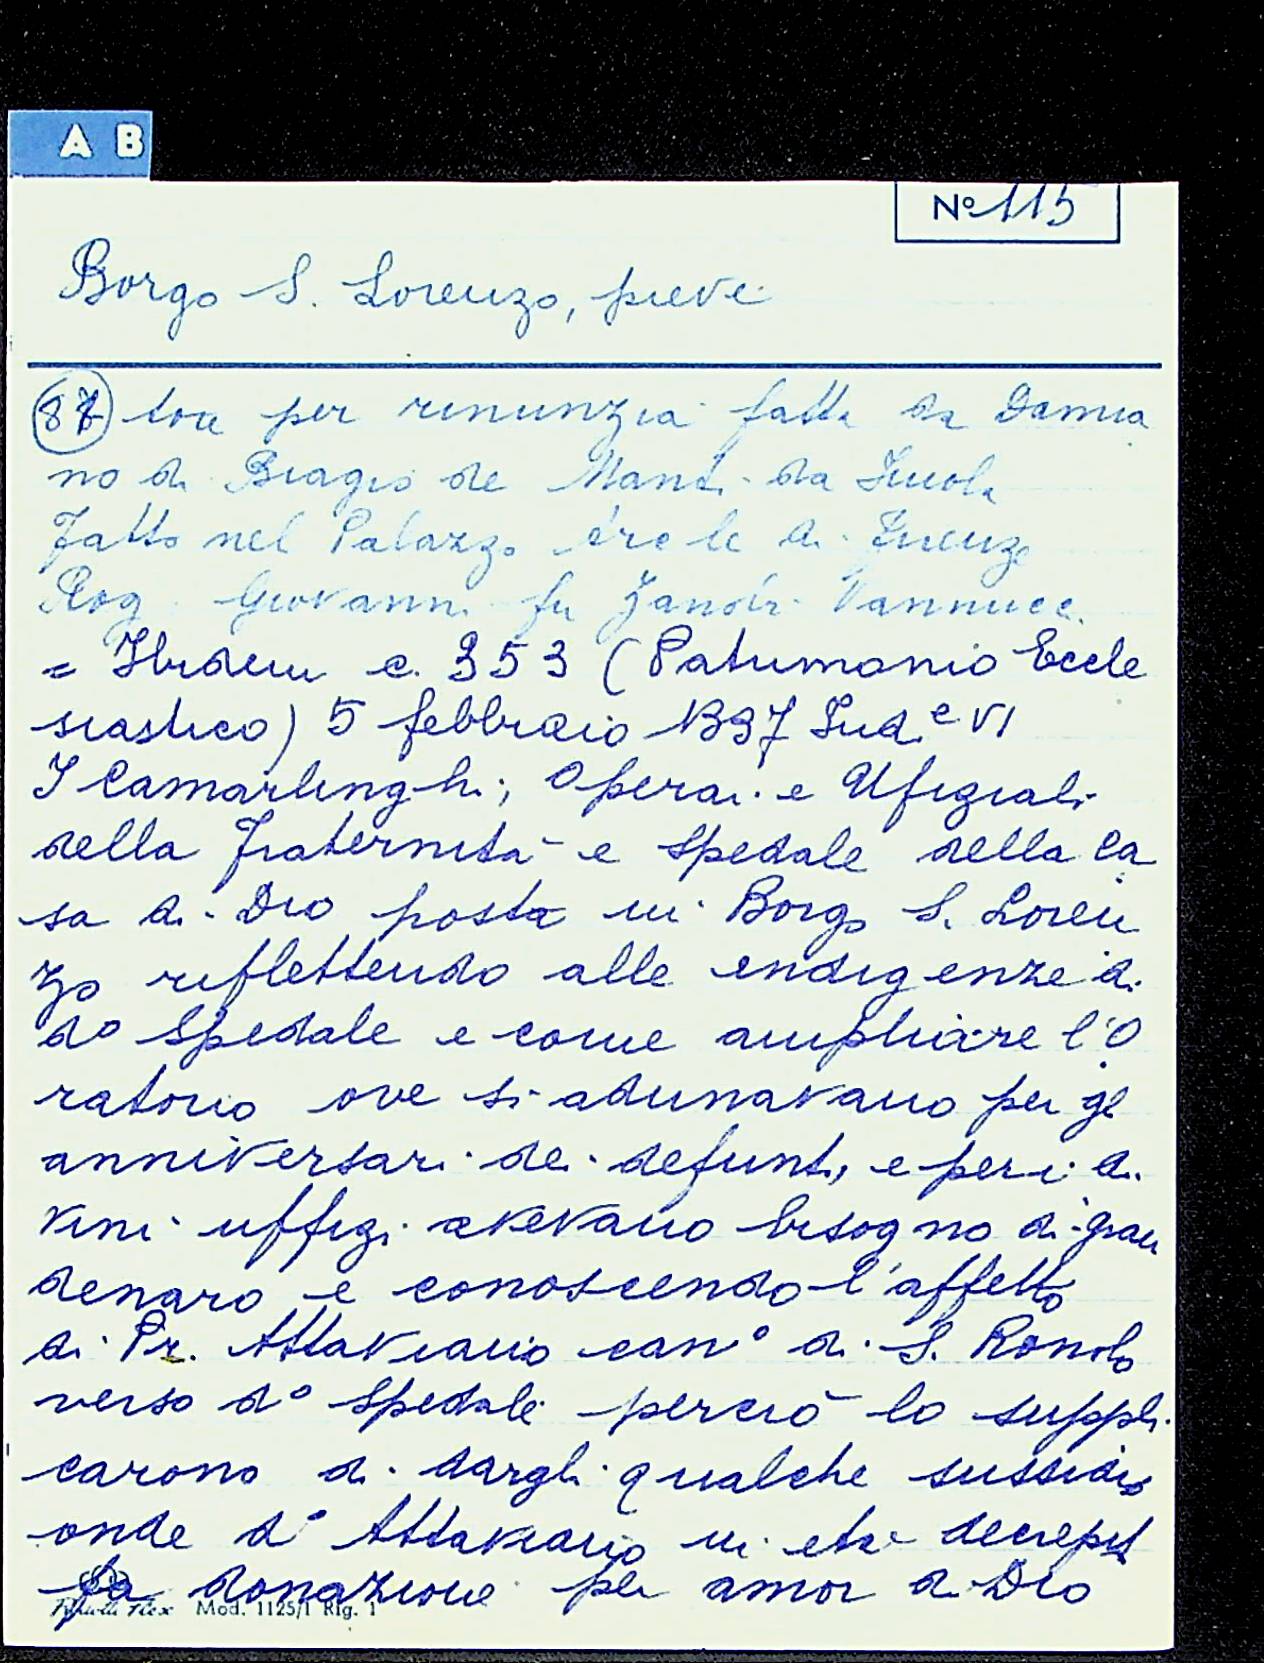 A B
Nº 115
Borgo S. Lorenzo, pieve
87 tore per renunzia fatta da Damia
no di Biagio de Manti da Imola
Fatto nel Palazzo di Firenze
Rog. Giovanni fu Zanobi Vannucci
= Ibidem c. 353 (Patrimonio Eccle
siastico) 5 febbraio 1397 Ind.e VI
I Camarlinghi, Operai e Ufiziali
della Fraternità e Spedale della Ca
sa di Dio posta in Borgo S. Loren
zo riflettendo alle endigenze di
do Spedale e come ampliare l'O
ratorio ove si adunavano per gl
anniversari dei defunti, e per i di
vini uffizi avevano bisogno di gran
denaro e conoscendo l'affetto
di Pr. Attaviano cano di S. Romolo
verso do Spedale perciò lo suppli
carono di dargli qualche sussidio
onde do Attaviano in età decrepit
fa donazione per amor di Dio
Mod. 1125/1 Rig. 1